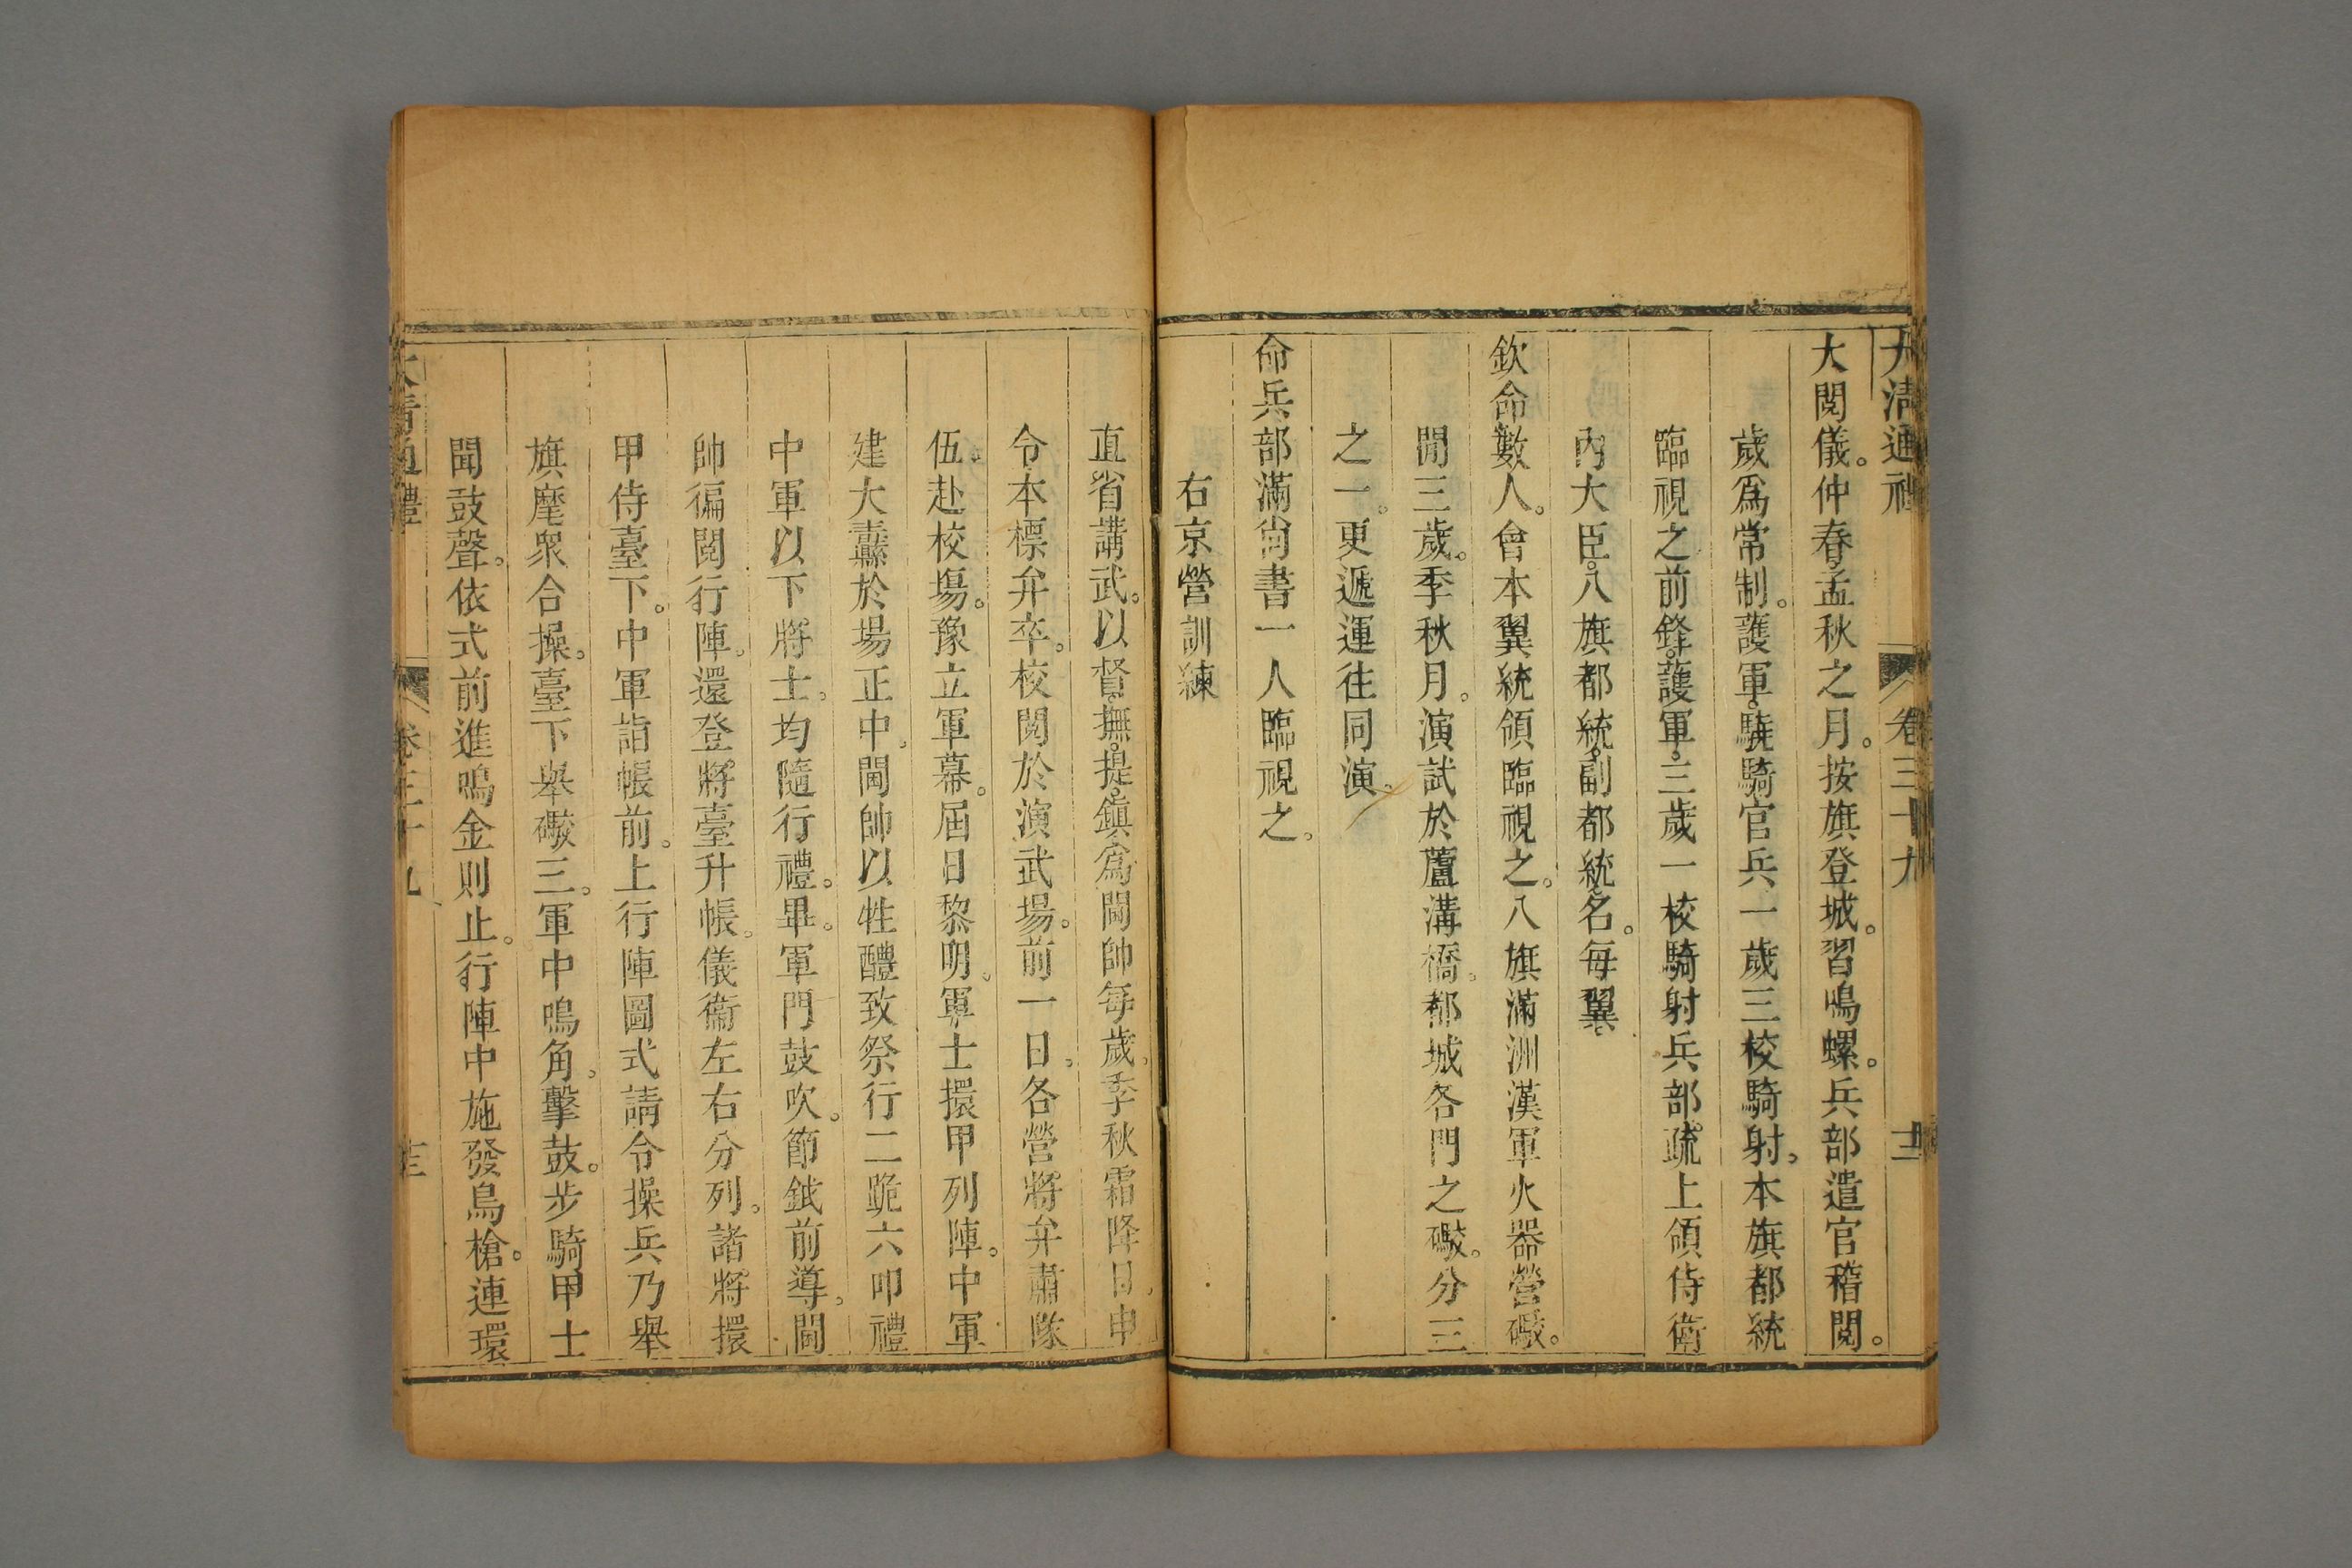 大清通禮 卷三十九 十二
大閱儀。仲春孟秋之月。按旗登城。習鳴螺。兵部遣官稽閱。
歲爲常制。護軍。驍騎官兵一歲三校騎射。本旗都統
臨視之前鋒。護軍。三歲一校騎射兵部。疏上領侍衛
內大臣。八旗都統。副都統名。每翼
欽命數人。會本翼統領臨視之。八旗滿洲漢軍火器營礮。
閒三歲。季秋月。演試於蘆溝橋。都城各門之礮。分三
之一。更遞運往同演。
命兵部滿尚書一人臨視之。
右京營訓練
直省講武。以督。撫。提。鎮。爲閫帥每歲。季秋霜降日。申
令本標弁卒。校閱於演武場。前一日。各營將弁肅隊
伍。赴校場。豫立軍幕。屆日黎明。軍士擐甲列陣。中軍
建大纛於場正中。閫帥以牲醴致祭行二跪六叩禮
中軍以下將士。均隨行禮。畢。軍門鼓吹。節鉞前導。閫
帥徧閱行陣。還登將臺升帳。儀衞左右分列。諸將擐
甲侍臺下。中軍詣帳前。上行陣圖式請令操兵乃舉
旗麾衆合操。臺下舉礮三。軍中鳴角。擊鼓。步騎甲士
聞鼓聲。依式前進鳴金則止。行陣中施發鳥槍。連環
大清通禮 卷三十九 十三